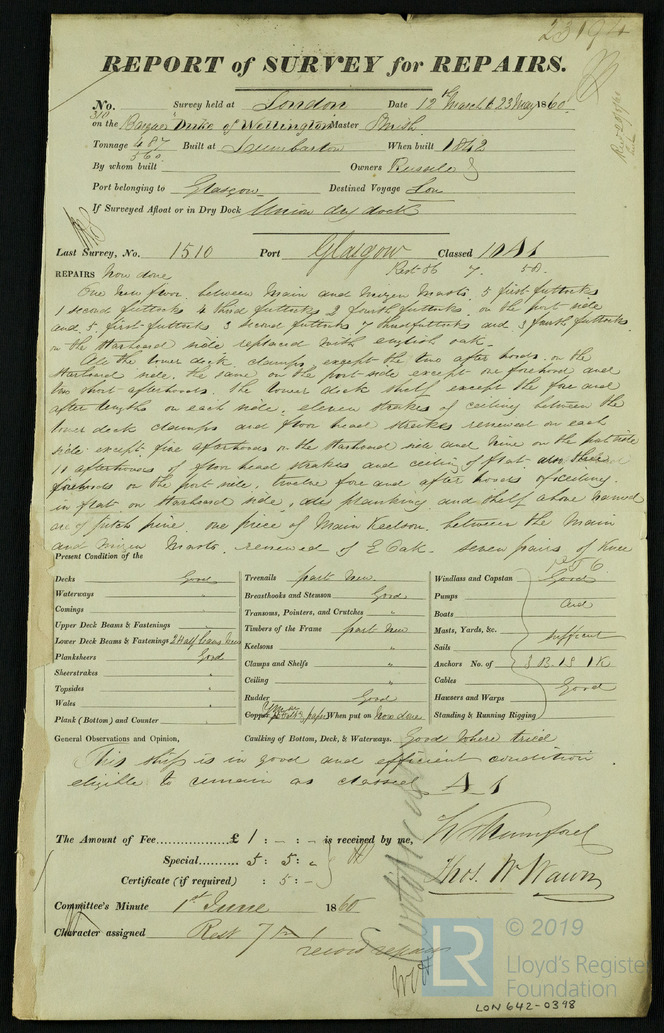 23194
REPORT of SURVEY for REPAIRS.
No. 310 Survey held at London Date 12th March to 23 May 1860
on the Barque Duke of Wellington Master
Tonnage 487 Built at Dumbarton When built 1842
560
By whom built Owners
Port belonging to Glasgow Destined Voyage Lon
If Surveyed Afloat or in Dry Dock Union dry dock
Last Survey, No. 1510 Port Glasgow Classed 10 A1
Rest 56 7.
REPAIRS Now done
One New floor between Main and Mizen Masts. 5 first futtocks
1 second futtocks 4 third futtocks 2 fourth futtocks on the port side
and 5 first futtocks 3 second futtocks 7 third futtocks and 3 fourth futtocks
on the Starboard side replaced with english oak.
All the lower deck clamps except the two after hoods on the
Starboard side, the same on the port side except one forehood and
two short afterhoods. the lower deck shelf except the fore and
after lengths on each side. eleven strakes of ceiling between the
lower deck clamps and floor head strakes renewed on each
side except five afterhoods on the Starboard side and nine on the port side
11 afterhoods of floor head strakes and ceiling of flat
forehoods on the port side. twelve fore and after hoods of ceiling
in flat on Starboard side, all planking and shelf above named
are of pitch pine. one piece of Main Keelson between the Main
and Mizen Masts renewed of E Oak. seven pairs of Knee
Present Condition of the
Decks Good
Waterways "
Comings "
Upper Deck Beams & Fastenings "
Lower Deck Beams & Fastenings 2 Half beams New
Planksheers Good
Sheerstrakes "
Topsides "
Wales "
Plank (Bottom) and Counter "
Treenails part New
Breasthooks and Stemson Good
Transoms, Pointers, and Crutches "
Timbers of the Frame part New
Keelsons "
Clamps and Shelfs "
Ceiling "
Rudder Good
Copper When put on Now done
Windlass and Capstan Good
Pumps
Boats and
Masts, Yards, &c. sufficient
Sails
Anchors No. of 3 B. 1 S 1 K
Cables Good
Hawsers and Warps
Standing & Running Rigging
General Observations and Opinion, Caulking of Bottom, Deck, & Waterways. Good where tried
This ship is in good and efficient condition
eligible to remain as classed A 1
The Amount of Fee......£ 1 : - : - is received by me,
Special......... 5 : 5 : "
Certificate (if required) : 5 : -
Thos. W. Wawn
Committee's Minute 1st June 1860
Character assigned Rest 7 A 1
record repairs
© 2019
LR
Lloyd's Register
Foundation
LON 642-0398